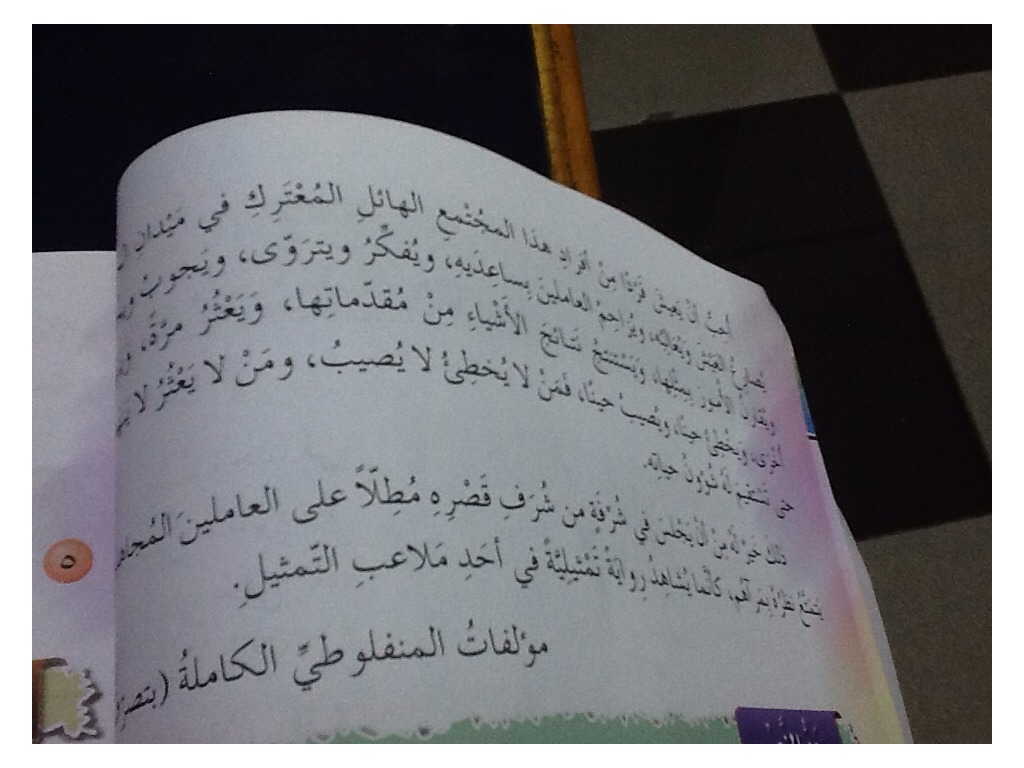 أُحبُّ أَنْ يَعيشَ فَرْدًا مِنْ أَفرادِ هذا المجْتمعِ الهائلِ المُعْتَرِكِ في مَيْدانِ
يُصارِعُ العَيْشَ ويُغالِبُه، ويُزاحِمُ العاملينَ بِساعِدَيهِ، ويُفكِّرُ ويتروّى، ويَجوبُ
ويُقارِنُ الأمورَ بِمِثْلِها، ويَسْتنتِجُ نتائجَ الأَشْياءِ مِنْ مُقدّماتِها، وَيَعْثُرُ مرَّةً،
أخْرى، ويُخْطِئُ حينًا، ويُصيبُ حينًا، فَمَنْ لا يُخطِئُ لا يُصيبُ، ومَنْ لا يَعْثُرُ لا
حتى تَسْتقيمَ لهُ شُؤونُ حياتِه.
ذلكَ خَيرٌ لهُ مِنْ أَنْ يَجْلسَ في شُرْفَةٍ من شُرَفِ قَصْرِهِ مُطِلّاً على العاملينَ
يُمَتِّعُ نظَرَهُ بِمَرآهُم، كأنّما يُشاهِدُ رِوايَةً تَمْثيلِيَّةً في أَحَدِ مَلاعبِ التّمثيلِ.
مؤلفاتُ المنفلوطيِّ الكاملةُ
٥